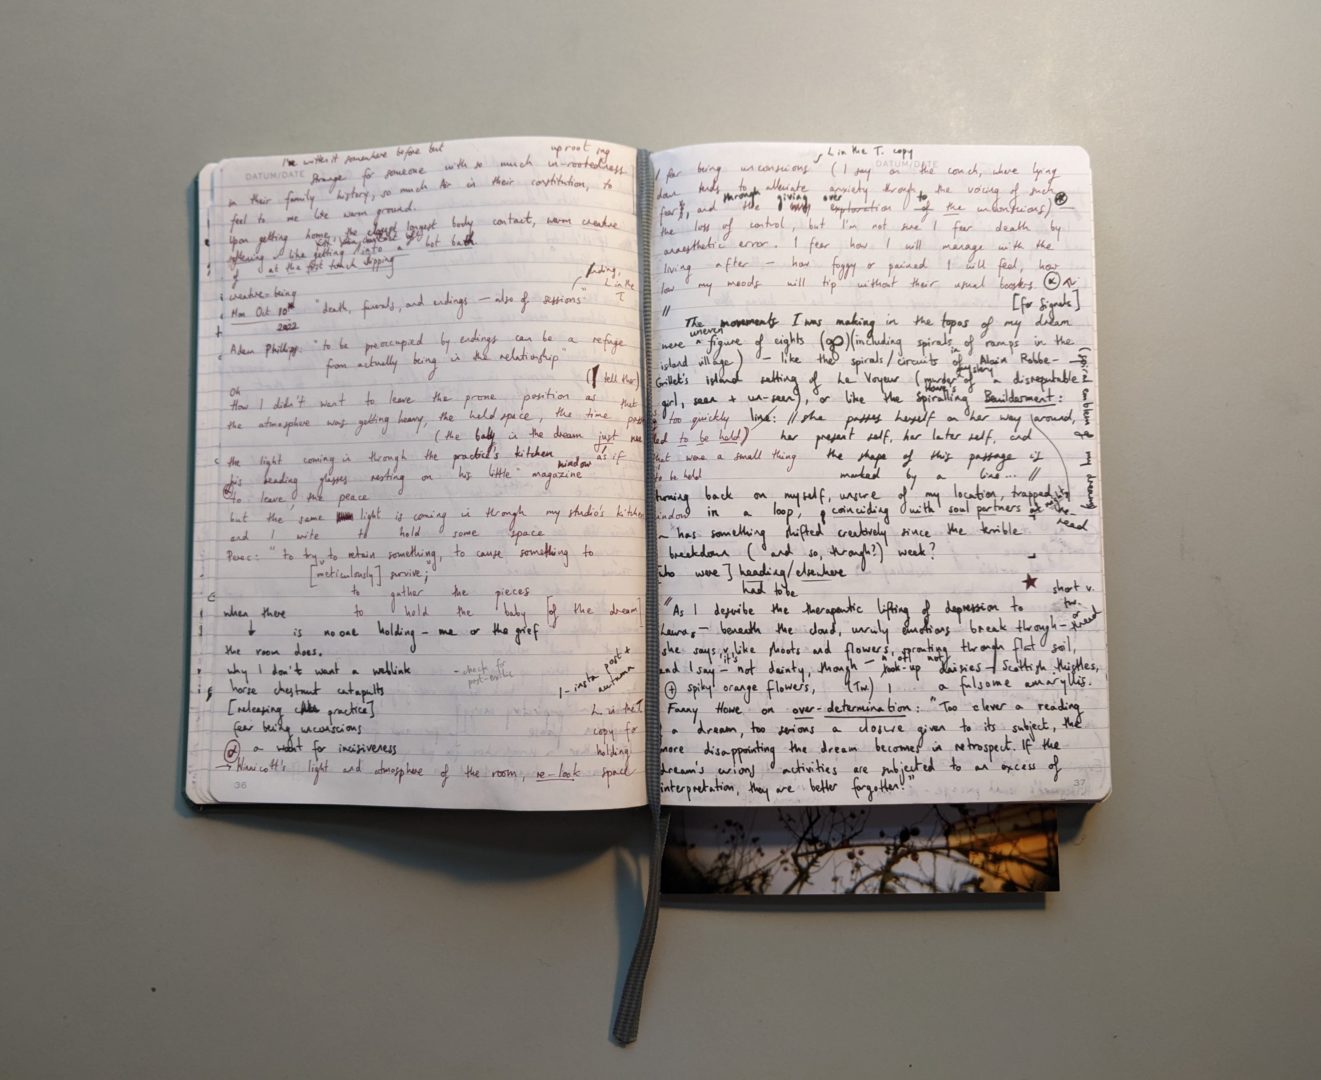 I've written it somewhere before but
uprooting
DATUM/DATE
strange for someone with so much in-rootedness
in their family history, so much Air in their constitution, to
feel to me like warm ground.
Upon getting home, the closest longest body contact, warm creative
offering, like getting into a hot bath
of at the first touch dipping
creative-being
Mon Oct 10th "death, funerals, and endings — also of sessions"
2022
ending,
L in the
T.
Adam Phillips: "to be preoccupied by endings can be a refuge
from actually being in the relationship"
(I tell them)
Oh
How I didn't want to leave the prone position as that
the atmosphere was getting heavy, the held space, the time
(the baby in the dream just
the light coming in through the practice's kitchen window as if
his reading glasses resting on his little magazine
to leave, the peace
but the same light is coming in through my studio's kitchen
and I write to hold some space
Perec: "to try to retain something, to cause something to
[meticulously] survive;"
to gather the pieces
when there to hold the baby [of the dream]
is no one holding — me or the grief
the room does.
why I don't want a weblink
- check for
post-
1 - insta post +
autumn
horse chestnut catapults
[releasing practice]
fear being unconscious
a want for incisiveness
L in the T
copy for
holding
space
→ Winnicott's light and atmosphere of the room, re-look
36
L in the T. copy
DATUM/DATE
I fear being unconscious (I say on the couch, where lying
down tends to alleviate anxiety through the voicing of such
fears, and the through giving over exploration to of the unconscious) —
the loss of control, but I'm not sure I fear death by
anaesthetic error. I fear how I will manage with the
living after — how foggy or pained I will feel, how
low my moods will tip without their usual boosters.
[for Signets]
//
The movements I was making in the topos of my dream
were uneven figure of eights (∞) (including spirals of ramps in the
island village) — like the spirals/circuits in of Alain Robbe-
Grillet's island setting of Le Voyeur (murder mystery of a disreputable
girl, seen + un-seen), or like the Howe's Spiralling Bewilderment:
(spiral emblem of my dreams)
too quickly line: // She passes herself on her way around,
to be held) her present self, her later self, and
that were a small thing the shape of this passage is
to be held marked by a line... //
turning back on myself, unsure of my location, trapped
window in a loop, coinciding with soul partners at the
road
~ has something shifted creatively since the terrible
breakdown ( and so, through?) week?
who were] heading/elsewhere
had to be
★ short v.
tw.
or
thread
"As I describe the therapeutic lifting of depression to
Laura, — beneath the cloud, unruly emotions break through —
she says, like shoots and flowers, sprouting through flat soil,
and I say — it's not dainty, though — a lot not daisies — Scottish thistles,
⊕ spiky orange flowers, (Tw.) a fulsome amaryllis.
Fanny Howe on over-determination: "Too clever a reading
of a dream, too serious a closure given to its subject, the
more disappointing the dream becomes in retrospect. If the
dream's curious activities are subjected to an excess of
interpretation, they are better forgotten."
37